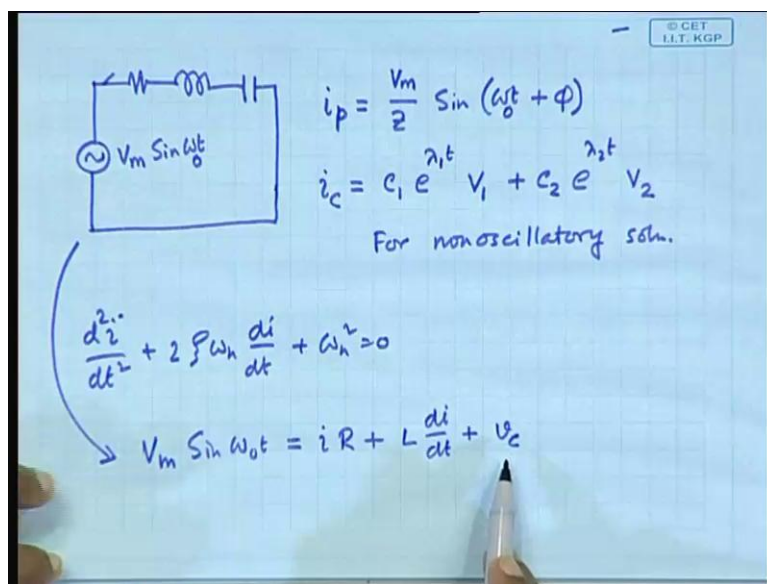 © CET
I.I.T. KGP
Vm Sin ω₀t
i_p = Vm/Z Sin (ω₀t + φ)
i_c = C₁ e^λ₁t V₁ + C₂ e^λ₂t V₂
For nonoscillatory soln.
d²i/dt² + 2 ζ ωn di/dt + ωn² = 0
Vm Sin ω₀t = i R + L di/dt + v_c